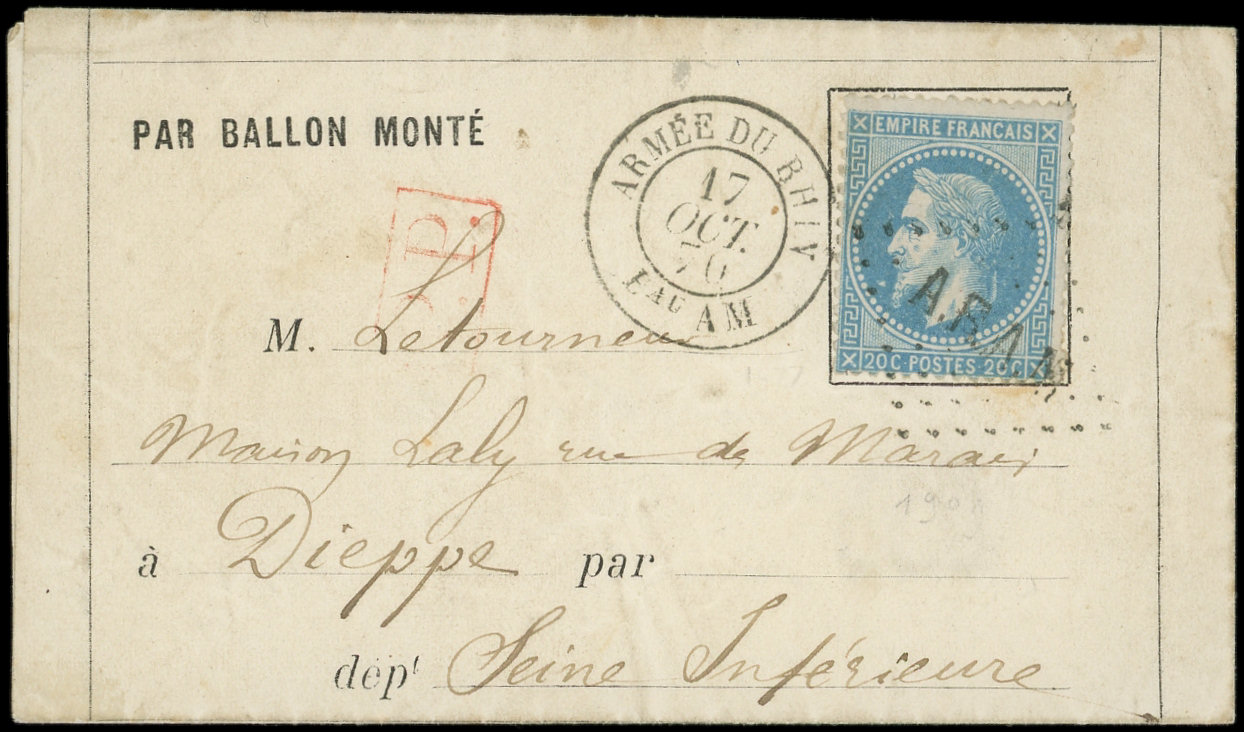 PAR BALLON MONTÉ
ARMÉE DU RHIN
17
OCT.
70
Eau AM
EMPIRE FRANÇAIS
20C POSTES 20C
P.P.
M. Letourneur
Maison Laly rue de Marais
à Dieppe par
dépt Seine Inférieure